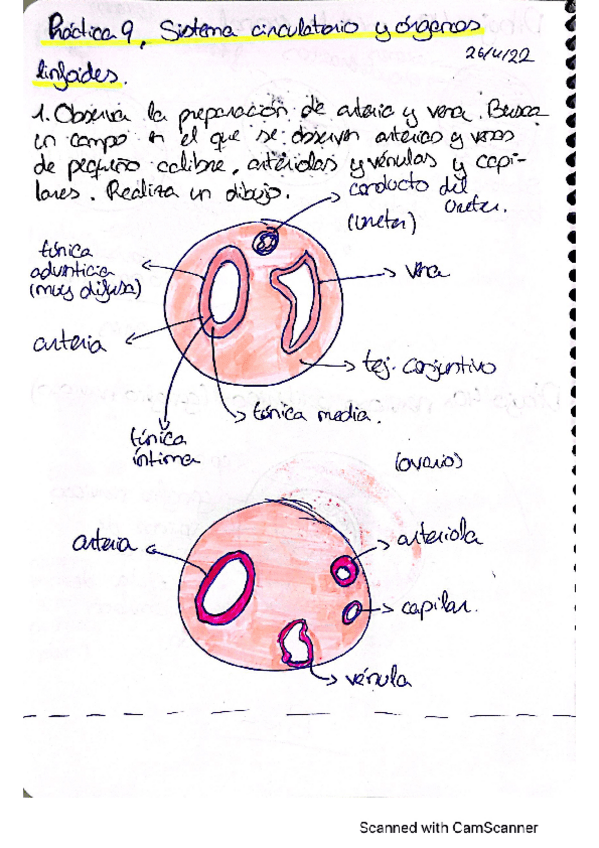 Práctica 9, Sistema circulatorio y órganos
26/4/22
linfoides.
1. Observa la preparación de arteria y vena. Busca
un campo en el que se observen arterias y venas
de pequeño calibre, arteriolas y vénulas y capi-
lares. Realiza un dibujo.
conducto del
Ureter.
(Ureter)
túnica
adventicia
(muy difusa)
vena
arteria
tej. conjuntivo
túnica media.
túnica
íntima
(ovario)
arteria
arteriola
capilar.
vénula
Scanned with CamScanner